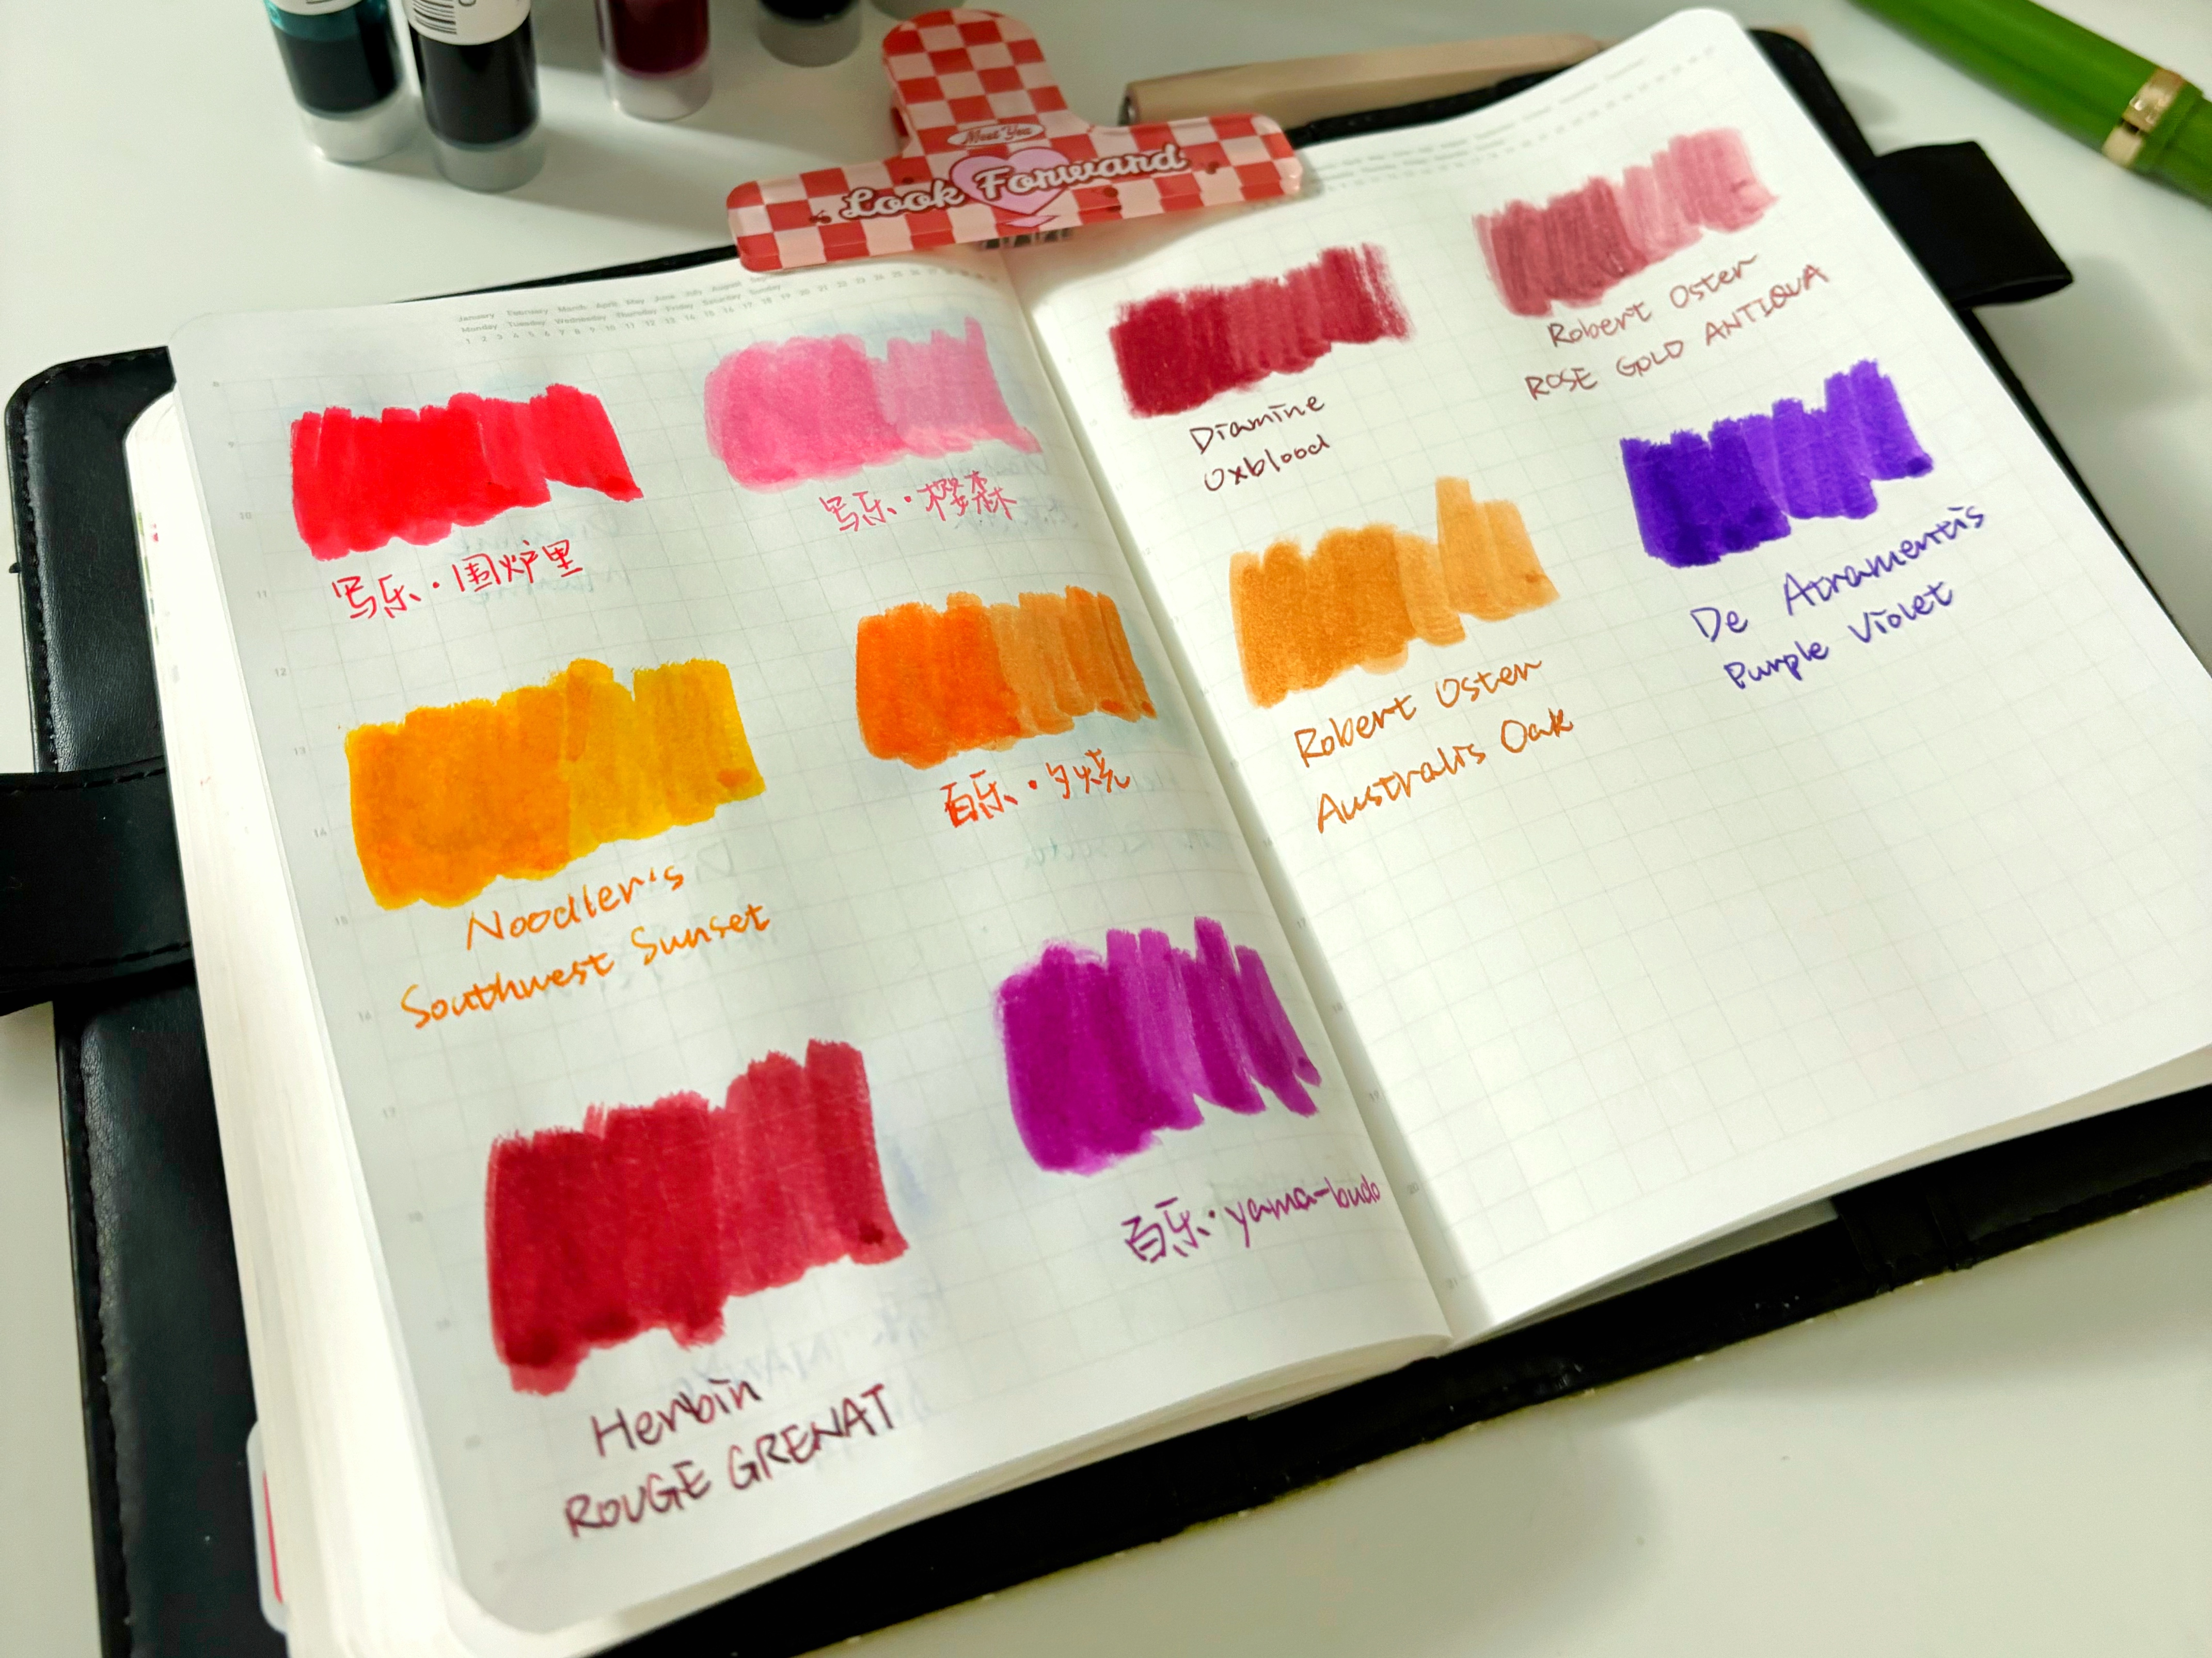 Meet You
Look Forward
January February March April May June July August
Monday Tuesday Wednesday Thursday Friday Saturday Sunday
1 2 3 4 5 6 7 8 9 10 11 12 13 14 15 16 17 18 19 20 21 22 23 24 25 26 27
8
9
10
11
12
13
14
15
16
17
18
写乐·围炉里
写乐·樱森
Noodler's
Southwest Sunset
百乐·夕烧
Herbin
ROUGE GRENAT
百乐·yama-budo
Diamine
Oxblood
Robert Oster
ROSE GOLD ANTIQUA
Robert Oster
Australis Oak
De Atramentis
Purple Violet